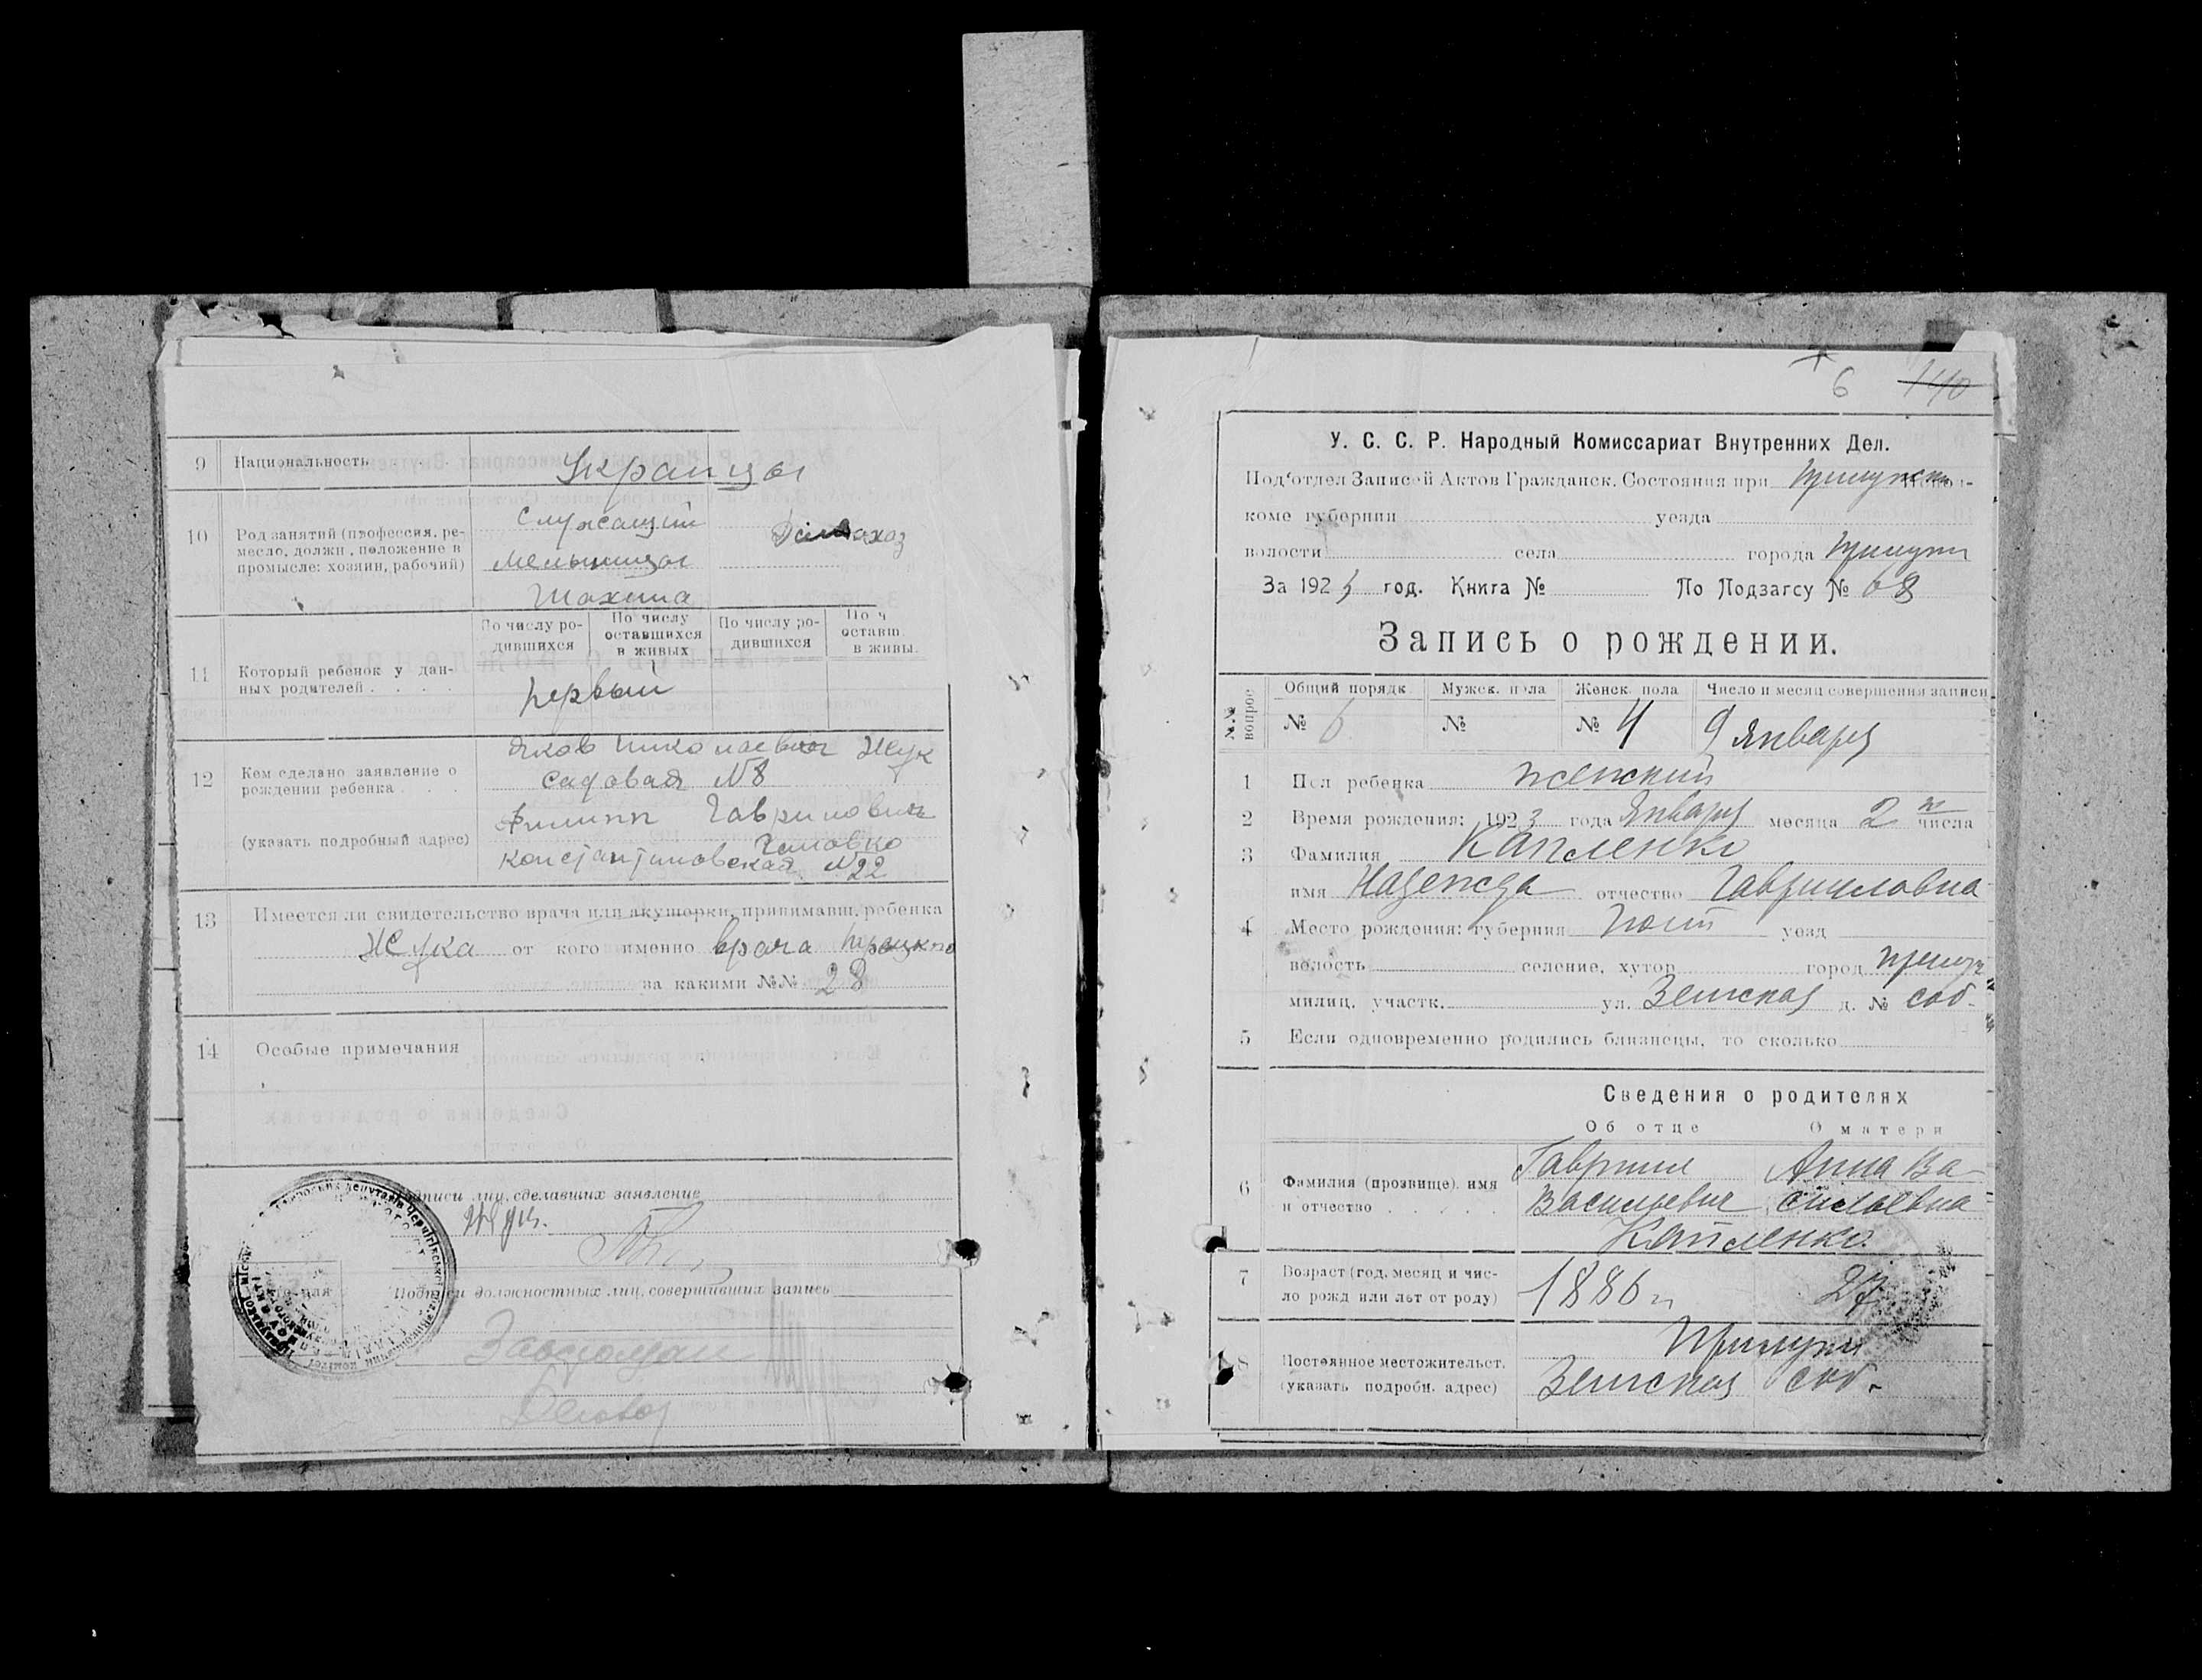 9 Национальность Украинцы
10 Род занятий (профессия, ре-
месло, должн., положение в
промысле: хозяин, рабочий)
служащий
мельницы
Шахина
Домохоз
По числу ро-
дившихся
По числу
оставшихся
в живых
По числу ро-
дившихся
По ч
оставш.
в живы.
11 Который ребенок у дан-
ных родителей . . . .
первый
12 Кем сделано заявление о
рождении ребенка . . .
(указать подробный адрес)
Яков Николаевич Жук
Садовая №8
Филипп Гаврилович
Константиновская №22
13 Имеется ли свидетельство врача или акушерки, принимавш. ребенка
от кого именно врача
за какими №№ 28
14 Особые примечания
Подписи лиц, сделавших заявление
Подписи должностных лиц, совершивших запись
6 140
У. С. С. Р. Народный Комиссариат Внутренних Дел.
Под'отдел Записей Актов Гражданск. Состояния при
коме губернии уезда
волости села города Прилуки
За 1923 год. Книга № По Подзагсу № 68
Запись о рождении.
№№ вопрос
Общий порядк. Мужск. пола Женск. пола Число и месяц совершения записи
№ 6 № № 4 9 Января
1 Пол ребенка женский
2 Время рождения: 1923 года Января месяца 2 числа
3 Фамилия Капленко
имя Надежда отчество Гаврииловна
4 Место рождения: губерния Полт уезд
волость селение, хутор город Прилуки
милиц. участк. ул. Земская д. № соб.
5 Если одновременно родились близнецы, то сколько
Сведения о родителях
Об отце О матери
6 Фамилия (прозвище), имя
и отчество . . . . .
Гавриил
Васильевич
Анна Ва-
сильевна
Капленко
7 Возраст (год, месяц и чис-
ло рожд или лет от роду)
1886 г. 27
8 Постоянное местожительст.
(указать подробн. адрес)
Прилуки
Земская соб.